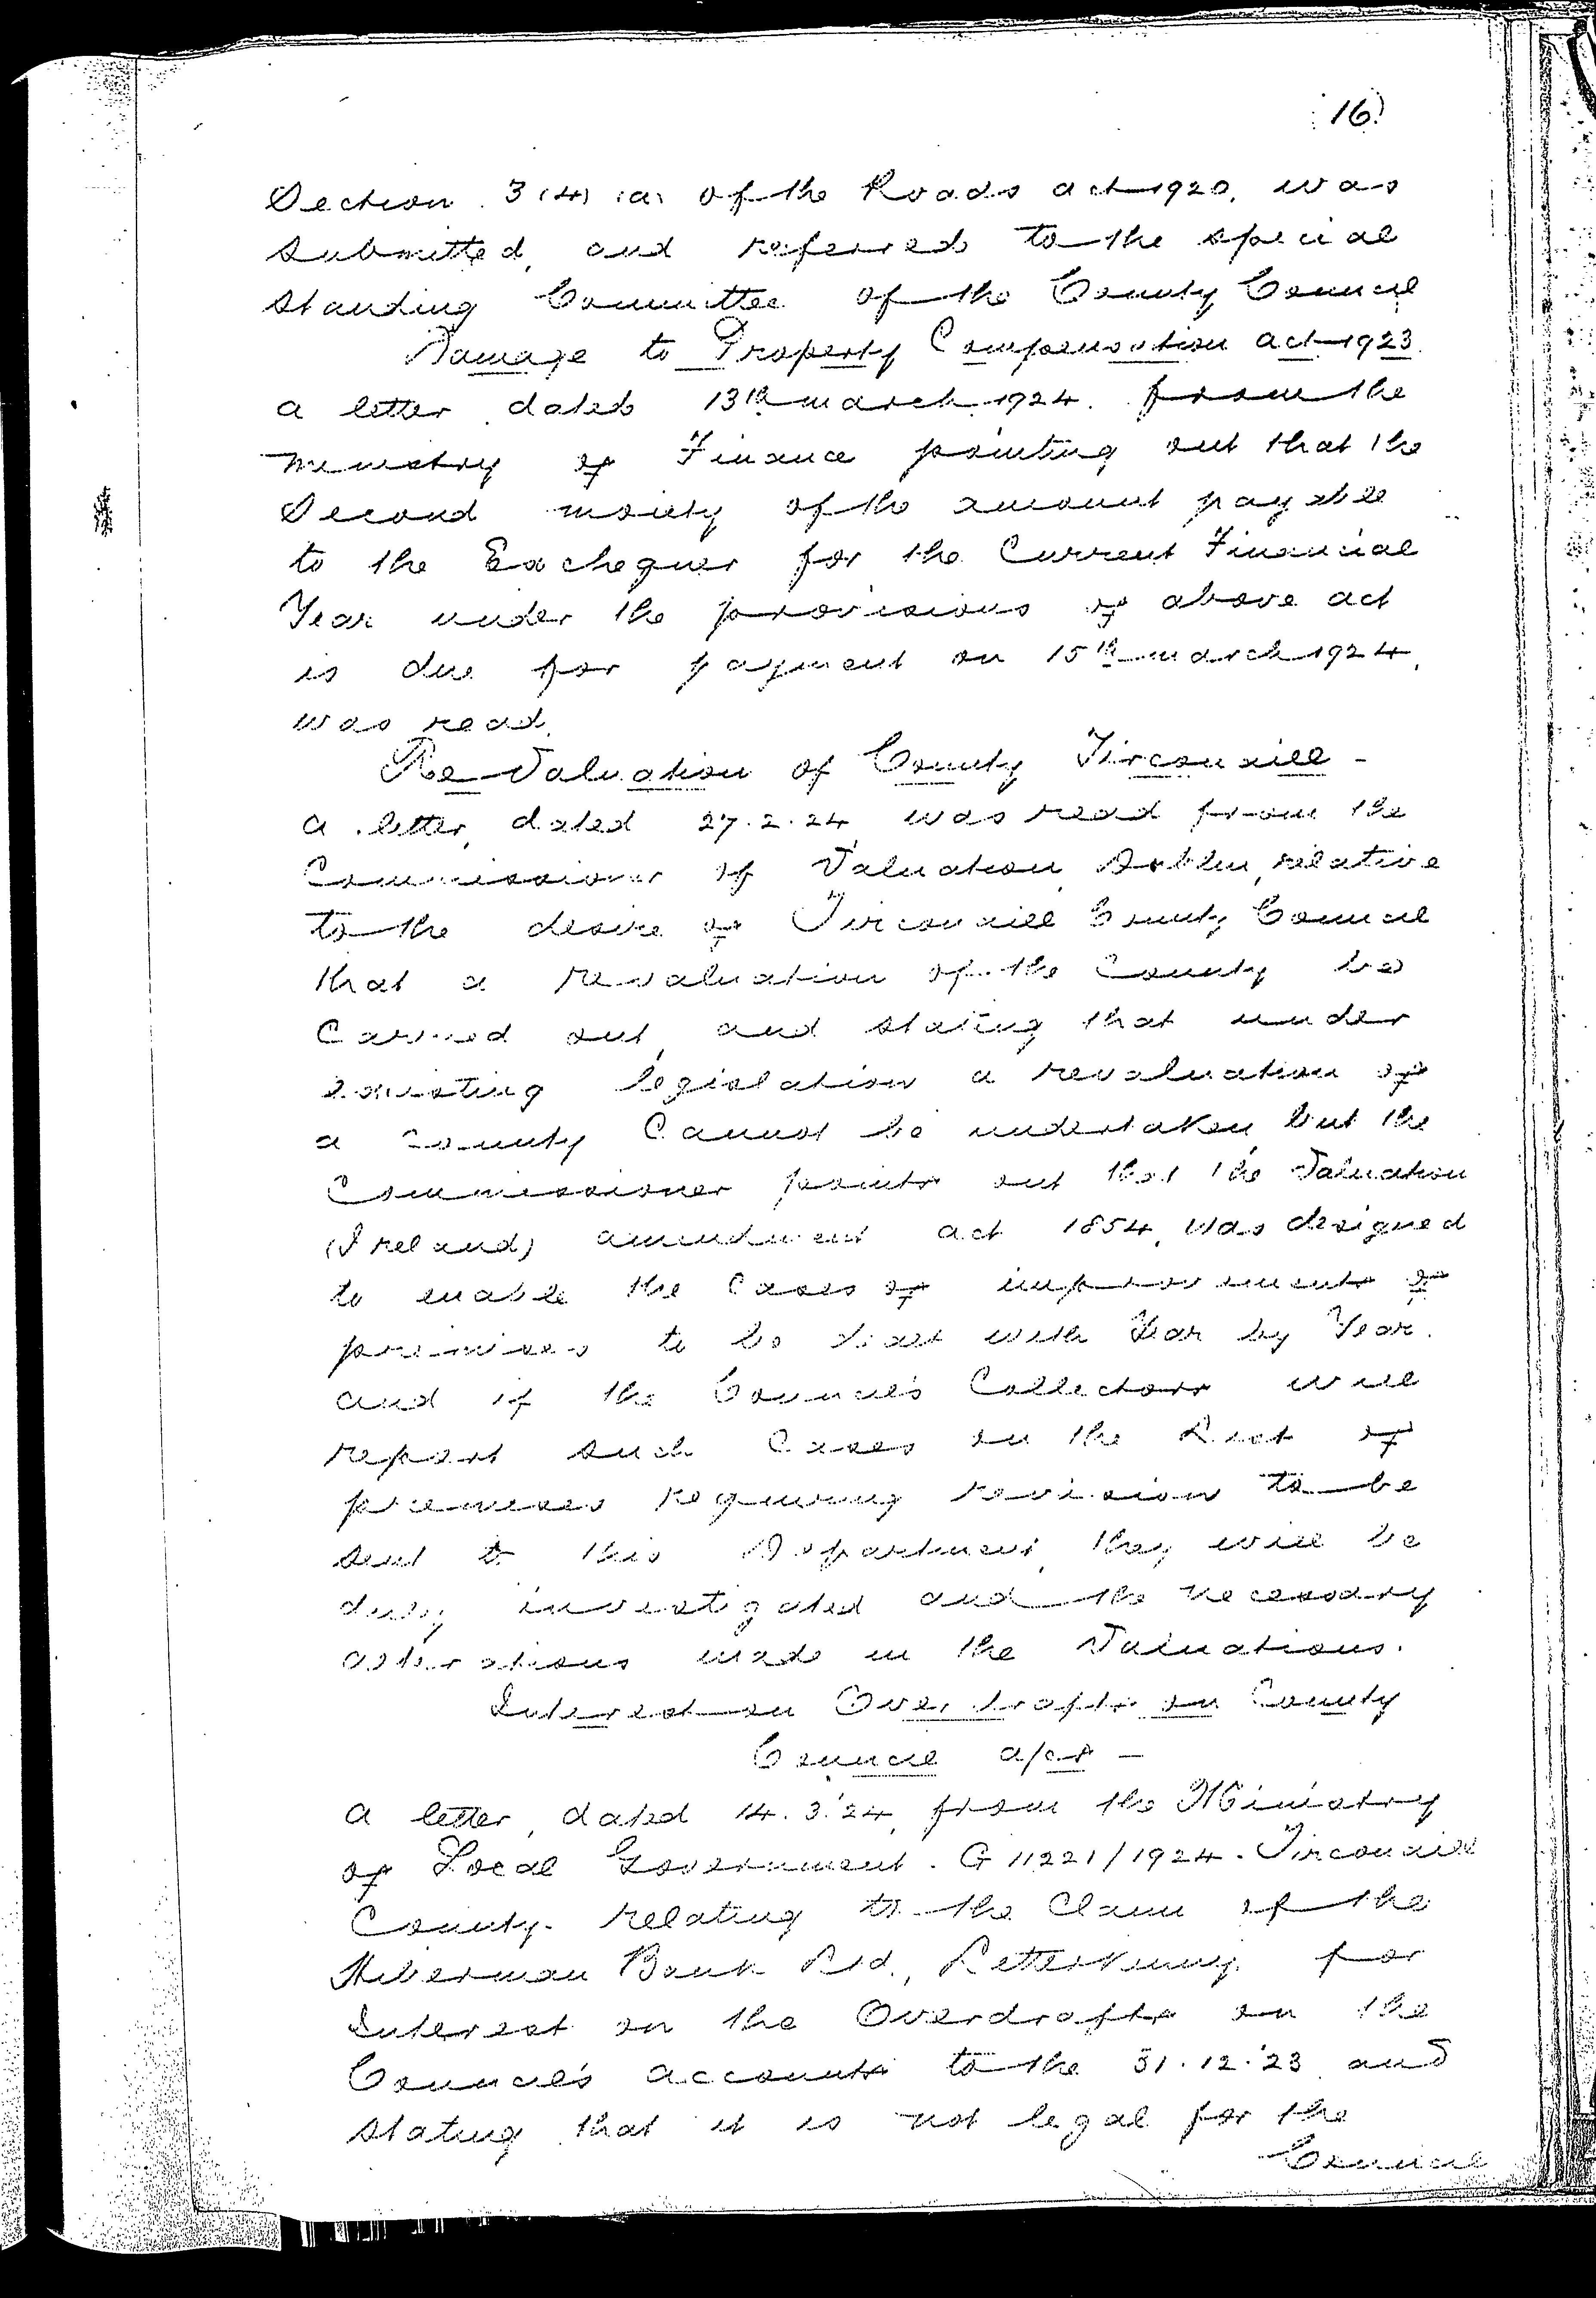 16)
Section 3 (4) (a) of the Roads act 1920, was
submitted, and referred to the special
standing Committee of the County Council
Damage to Property Compensation act 1923
a letter dated 13th march 1924. from the
ministry of Finance pointing out that the
Second moiety of the amount payable
to the Exchequer for the Current Financial
Year under the provisions of above act
is due for payment on 15th march 1924,
was read.
Re-Valuation of County Tirconaill -
a letter, dated 27.2.24, was read from the
Commissioner of Valuation, Dublin, relative
to the desire of Tirconaill County Council
that a revaluation of the County be
Carried out, and stating that under
existing legislation a revaluation of
a County Cannot be undertaken, but the
Commissioner points out that the Valuation
(Ireland) amendment act 1854, was designed
to enable the Cases of improvements of
premises to be dealt with Year by Year.
and if the Council's Collectors will
report such Cases on the List of
premises requiring revision to be
sent to this Department, they will be
duly investigated and the necessary
alterations made in the Valuations.
Interest on Overdrafts on County
Council a/cs -
a letter, dated 14.3.'24, from the Ministry
of Local Government. G 11221/1924. Tirconaill
County. relating to the Claim of the
Hibernian Bank Ltd., Letterkenny. for
Interest on the Overdrafts on the
Council's accounts to the 31.12.'23 and
stating that it is not legal for the
Council